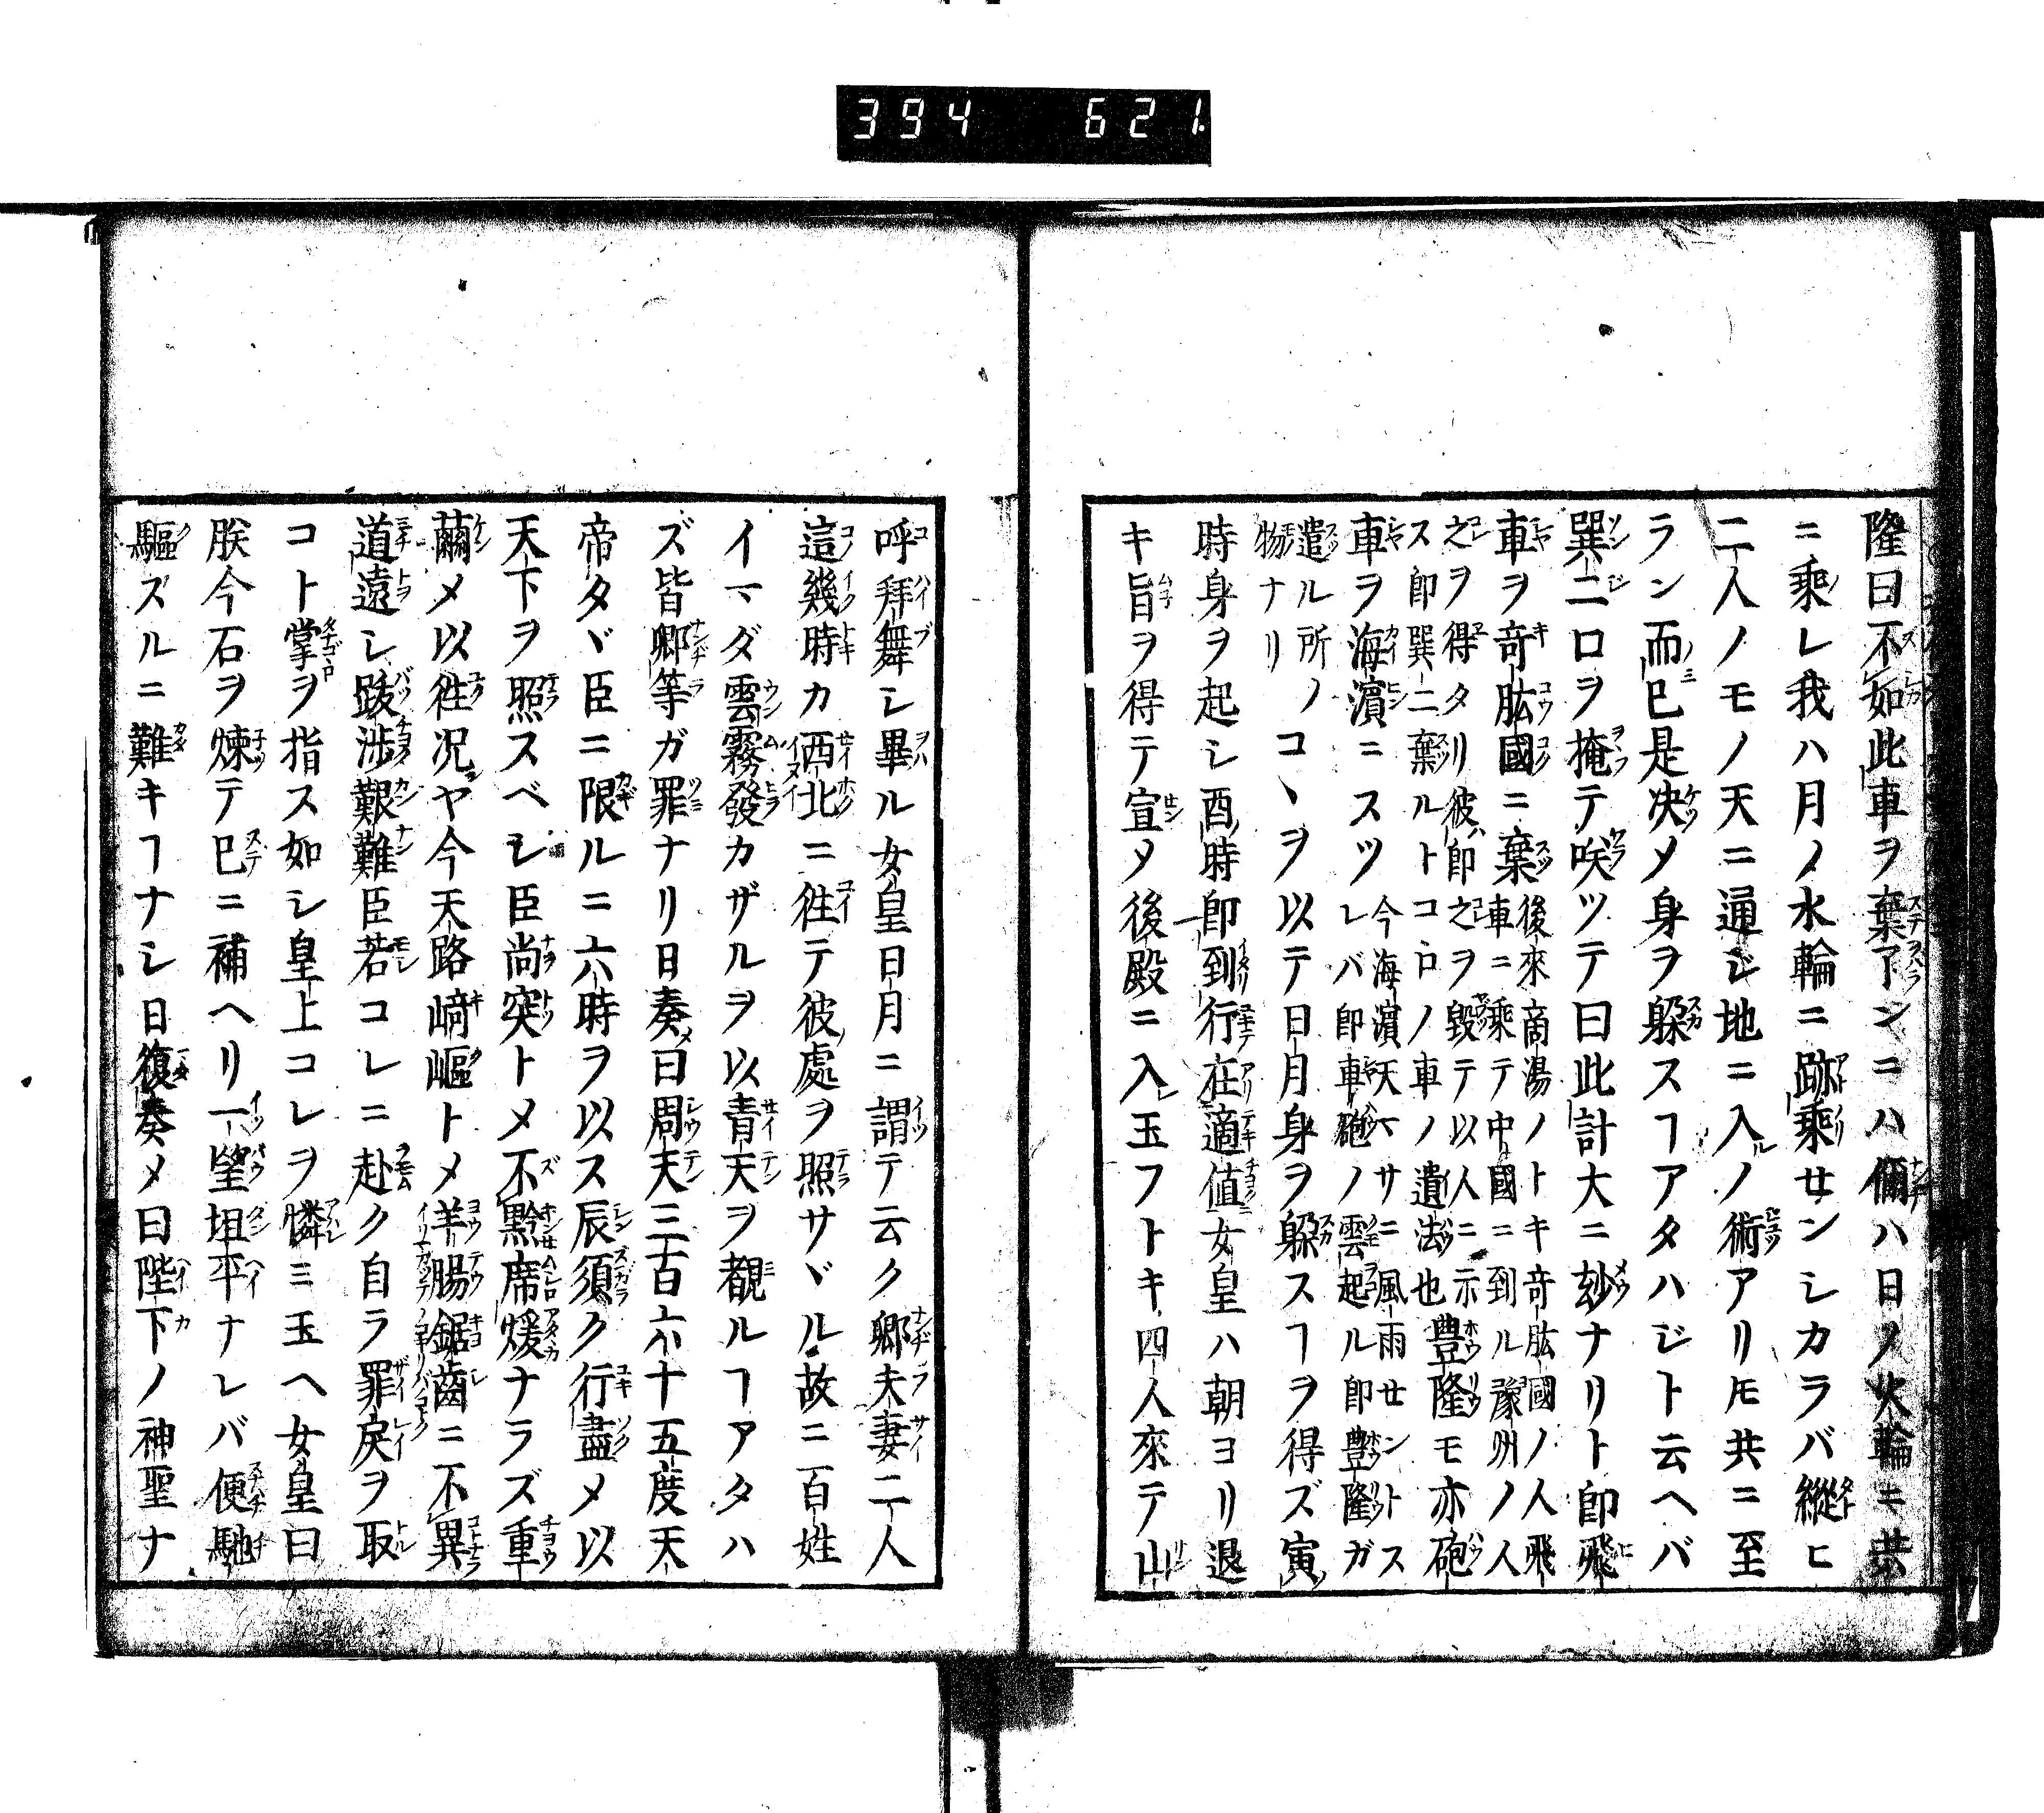 394 621
隆曰不如此車ヲ棄了ンニハ儞ハ日ノ火輪ニ共
ニ乘レ我ハ月ノ水輪ニ跡乘せンシカラバ縱ヒ
二人ノモノ天ニ通ジ地ニ入ルノ術アリ𪜈共ニ至
ラン而已是决メ身ヲ躲スヿアタハジト云ヘバ
巽二口ヲ掩テ咲ツテ曰此計大ニ玅ナリト即飛
車ヲ奇肱國ニ棄後來商湯ノトキ奇肱國ノ人飛
車ニ乘テ中國ニ到ル豫州ノ人
之ヲ得タリ彼ハ即之ヲ毀テ以人ニ示
ス即巽二棄ルトコロノ車ノ遺法也豊隆モ亦砲
車ヲ海濵ニスツ今海濵天六サニ風雨せントス
レバ即車砲ノ雲起ル即豊隆ガ
遣ル所ノ
物ナリコヽヲ以テ日月身ヲ躲スヿヲ得ズ寅
時身ヲ起シ酉時即到行在適値女皇ハ朝ヨリ退
キ旨ヲ得テ宣メ後殿ニ入レ玉フトキ四人來テ山
呼拜舞シ畢ル女皇日月ニ謂テ云ク卿夫妻二人
這幾時カ西北ニ徃テ彼處ヲ照サヾル故ニ百姓
イマダ雲霧發カザルヲ以青天ヲ覩ルヿアタハ
ズ皆卿等ガ罪ナリ日奏メ曰周天三百六十五度天
帝タヾ臣ニ限ルニ六時ヲ以ス辰須ク行盡メ以
天下ヲ照スベシ臣尚突トメ不黔席煖ナラズ重
繭メ以徃况ヤ今天路﨑嶇トメ羊腸鋸齒ニ不異
道遠シ跋涉艱難臣若コレニ赴ク自ラ罪戾ヲ取
コト掌ヲ指ス如シ皇上コレヲ憐ミ玉ヘ女皇曰
朕今石ヲ煉テ已ニ補ヘリ一望坦平ナレバ便馳
驅ズルニ難キヿナシ日復奏メ曰陛下ノ神聖ナ